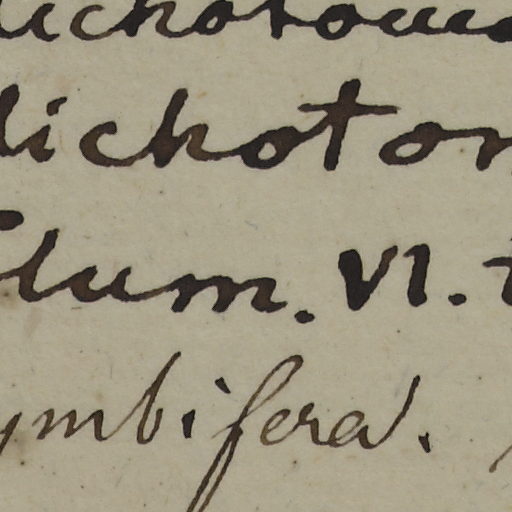 dichotoma
dichoton
Plum. VI. t
ymbifera.